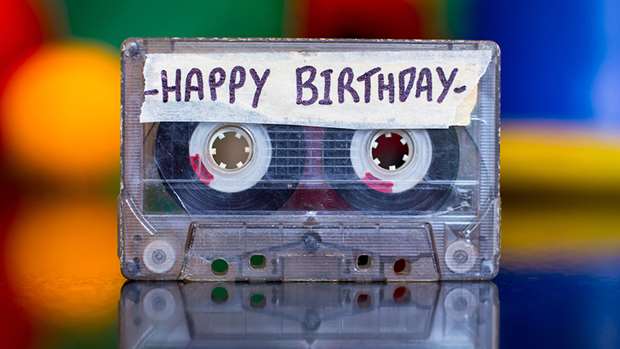 -HAPPY BIRTHDAY-